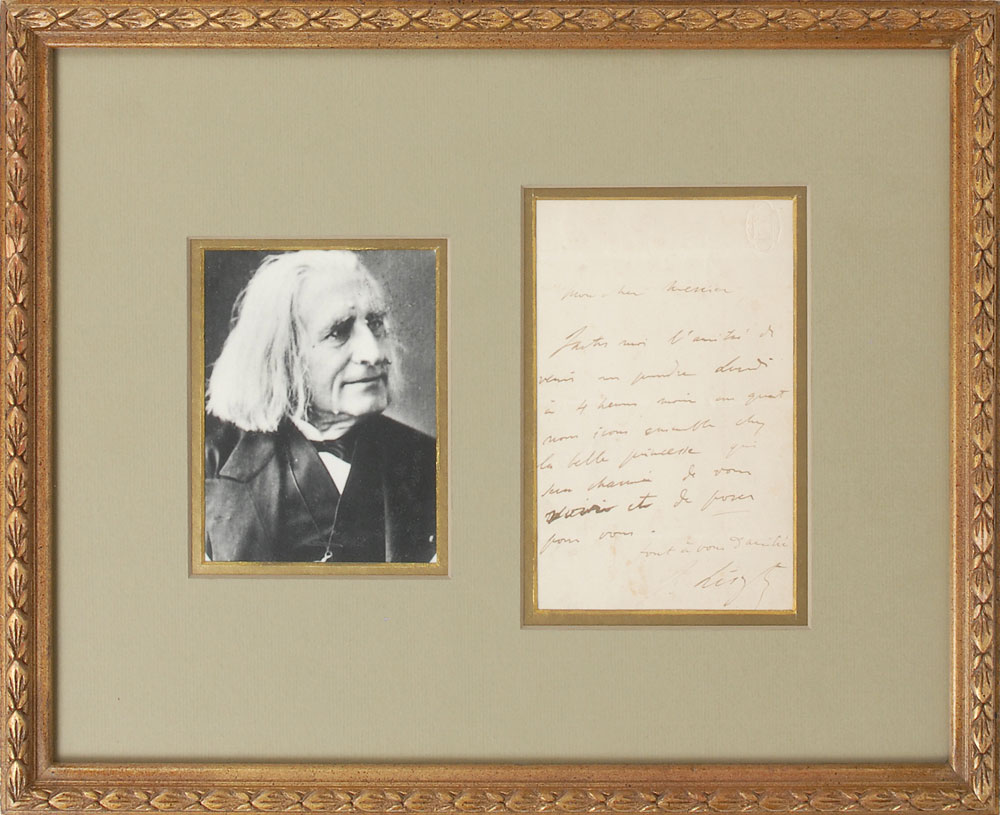 mon cher
Faites moi l'amitié de
venir me prendre Lundi
à 4 heures moins un quart
nous irons ensemble chez
la belle princesse qui
sera charmée de vous
revoir et de poser
pour vous.
tout à vous d'amitié
F. Liszt